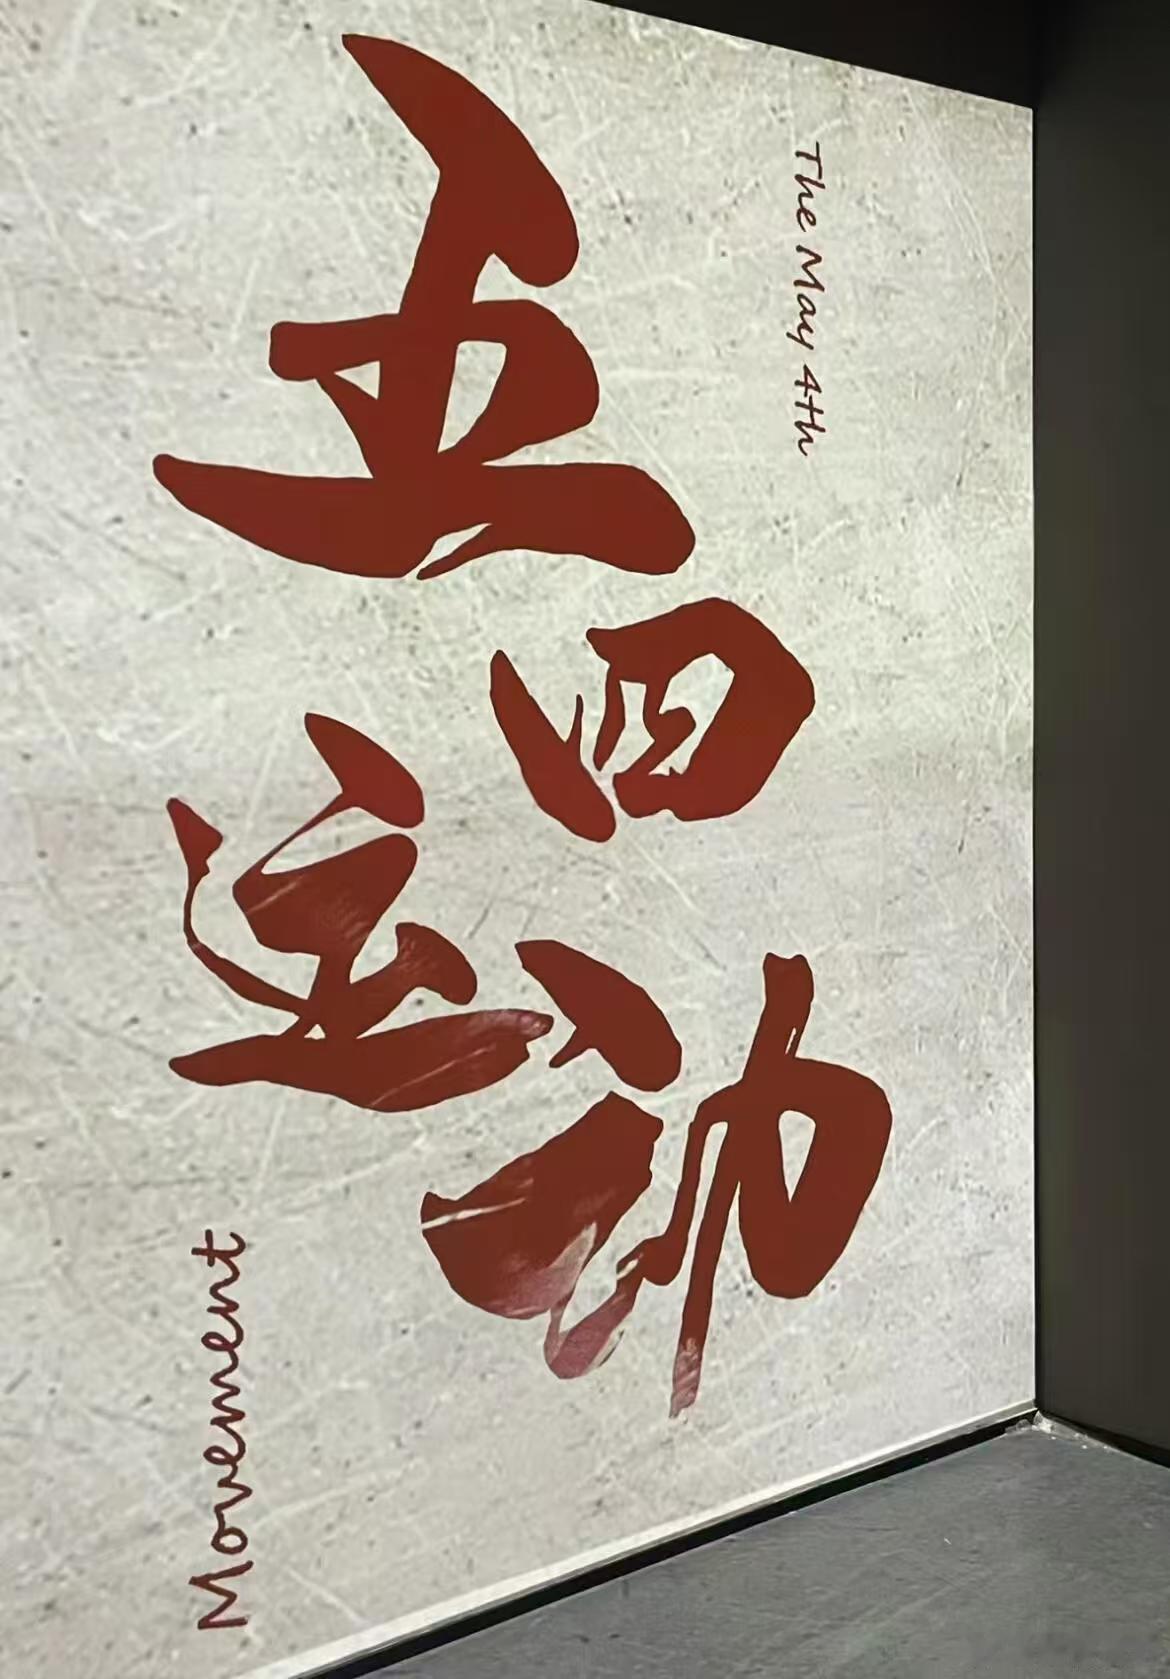 The May 4th
五四
运动
Movement